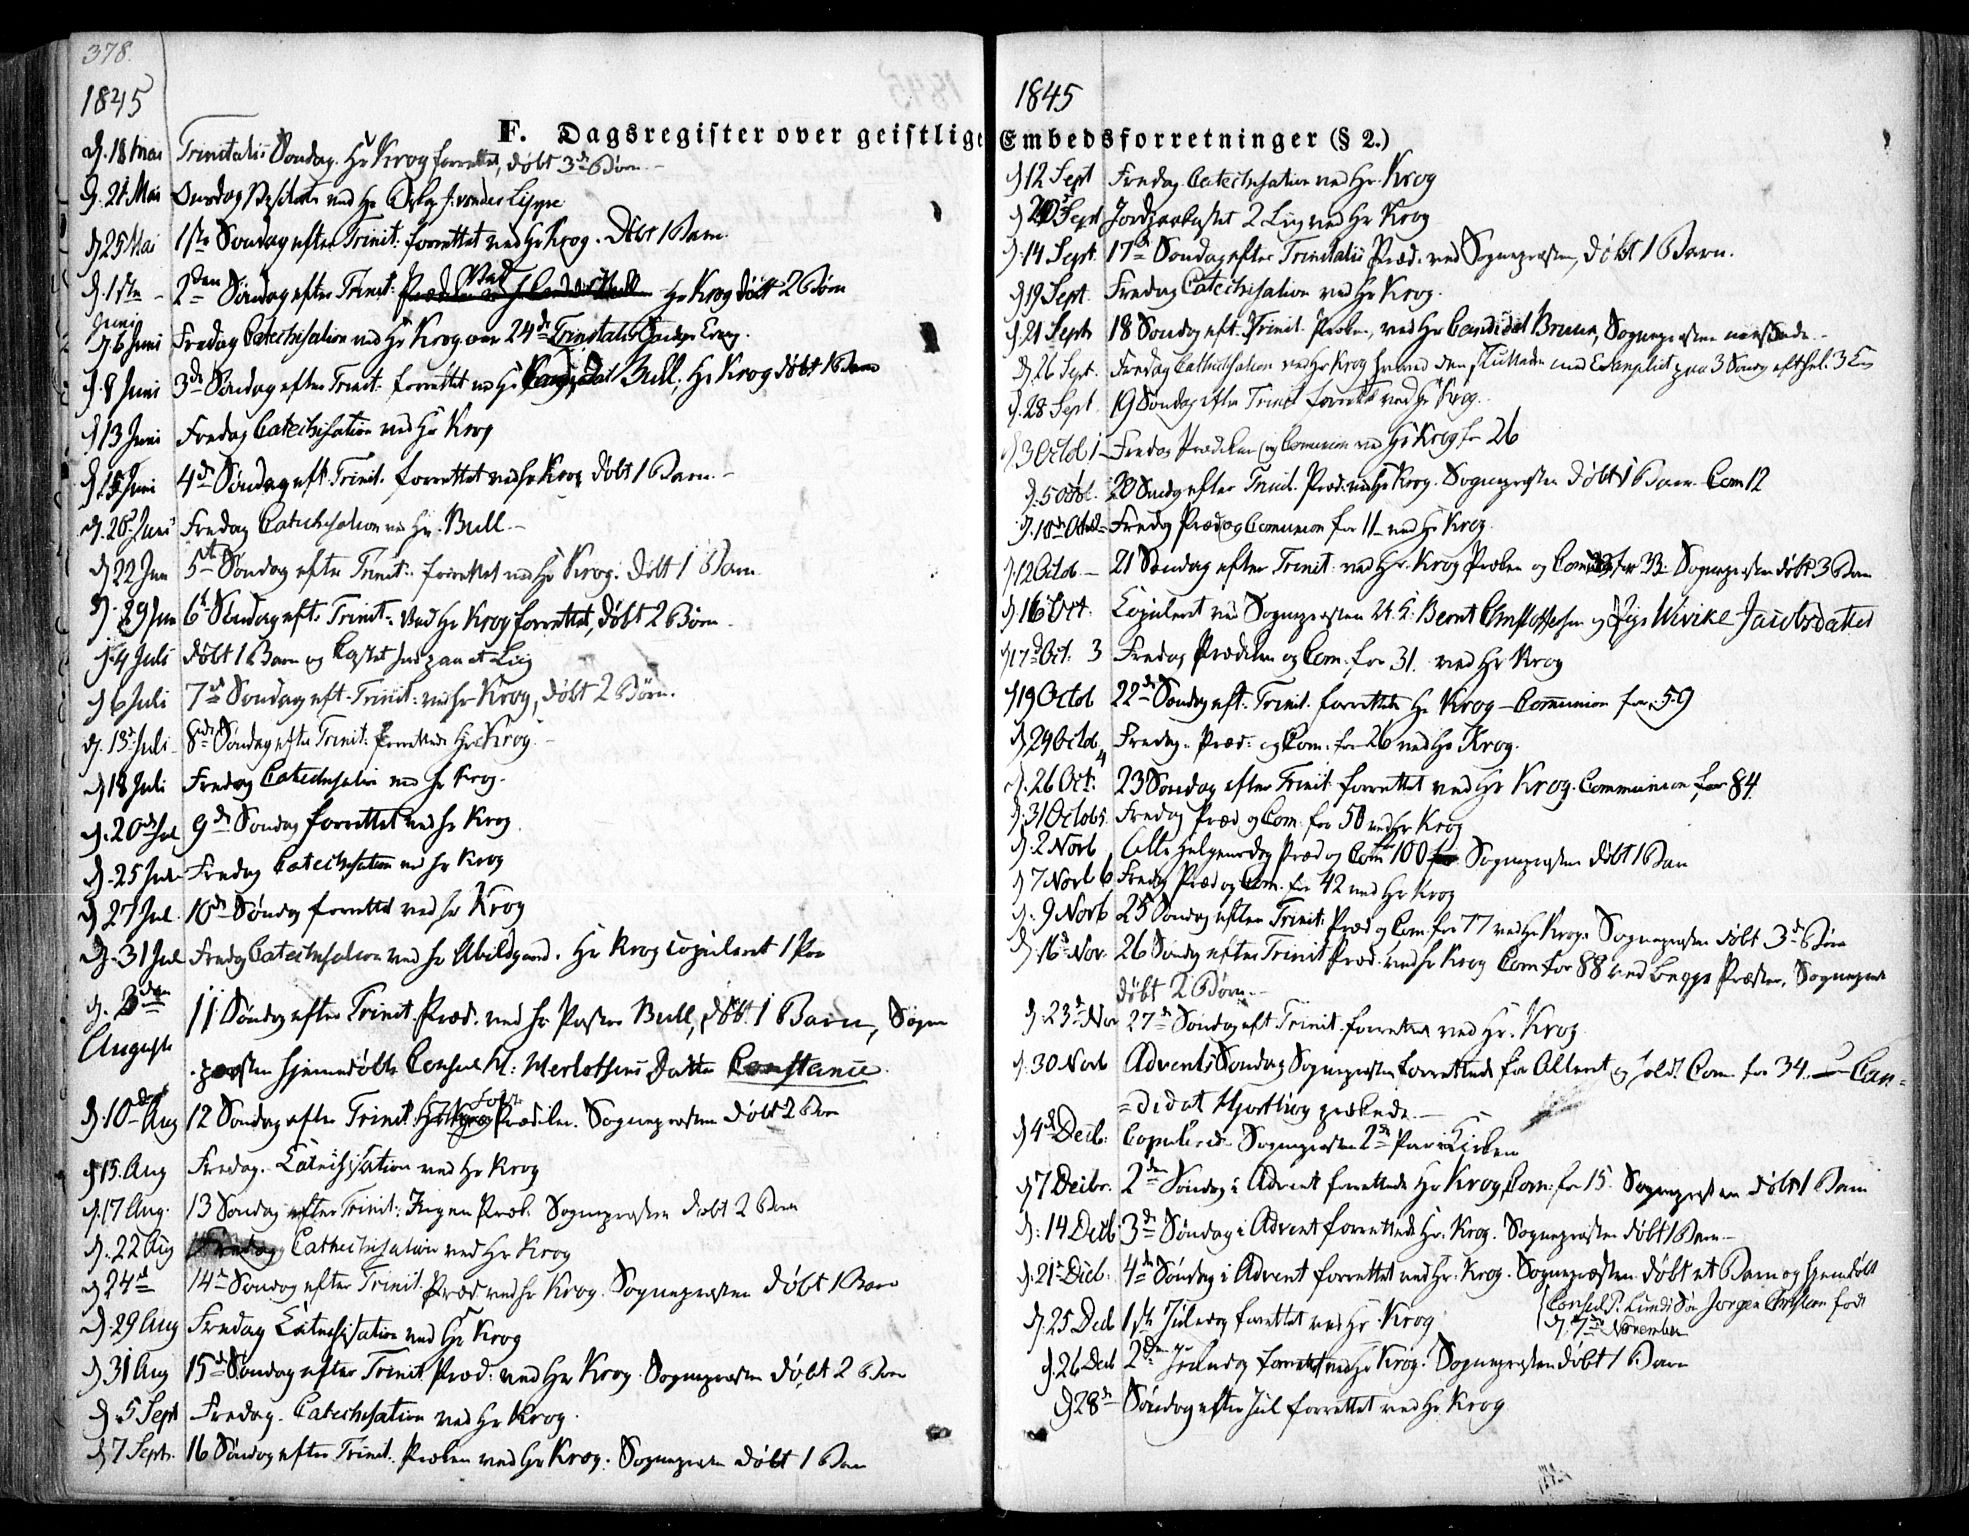 378.
1845
F. Dagsregister over geistlige
d. 18 Mai Trinitatis Søndag. Hr Krog forrettet, døbt 3de Børn
d. 21 Mai Onsdag Visitats ved Hr v. der Lippe
d 25 Mai 1ste Søndag efter Trinit: forrettet ved Hr Krog. Døbt 1 Barn
d. 1ste Juni 2den Søndag efter Trinit: Hr Krog døbt 2 Børn
d 6 Juni Fredag Catechisation ved Hr Krog over 24de Trinitatis Søndags Evang.
d. 8 Juni 3de Søndag efter Trinit: forrettet ved Hr Candidat Bull, Hr Krog døbt 1 Barn
d 13 Juni Fredag Catechisation ved Hr Krog
d. 15 Juni 4de Søndag eft Trinit. forrettet ved Hr Krog døbt 1 Barn
d. 20 Juni Fredag Catechisation ved Hr. Bull
d 22 Jun 5te Søndag efter Trinit: forrettet ved Hr Krog. Døbt 1 Barn
d. 29 Jun 6te Søndag eft: Trinit: ved Hr Krog forrettet, døbt 2 Børn
d. 4 Juli døbt 1 Barn og kastet Jord paa et Liig
d 6 Juli 7de Søndag eft. Trinit: ved Hr Krog, døbt 2 Børn.
d. 13 Juli 8de Søndag efter Trinit: forrettede Hr Krog
d 18 Juli Fredag Catechisation ved Hr Krog.
d. 20de Jul 9de Søndag forrettet ved Hr Krog
d. 25 Juli Fredag Catechisation ved Hr Krog
d 27 Jul. 10de Søndag forrettet ved Hr Krog
d. 31 Jul Fredag Catechisation ved Hr Abildgaard. Hr Krog copuleret 1 Par
d. 3den August 11 Søndag efter Trinit. Præd. ved Hr Pastor Bull, døbt 1 Barn, Sogne
præsten hjemmedøbte Consul M: Constance
d. 10de Aug 12 Søndag efter Trinit: Prædiken. Sognepræsten døbt 2 Børn
d 15. Aug Fredag. Catechisation ved Hr Krog
d. 17 Aug. 13 Søndag efter Trinit: Ingen Præk. Sognepræsten døbt 2 Børn
d. 22 Aug Fredag Cathechisation ved Hr Krog
d 24de 14de Søndag efter Trinit Præd ved Hr Krog. Sognepræsten døbt 1 Barn
d. 29 Aug Fredag Catechisation ved Hr Krog
d 31 Aug 15de Søndag efter Trinit. Præd: ved Hr Krog. Sognepræsten døbt 2 Børn
d. 5 Sept Fredag. Catechisation ved Hr Krog.
d 7 Septr. 16 Søndag efter Trinit. Præken ved Hr Krog. Sognepræsten døbt 1 Barn
1845
Embedsforretninger (§ 2.)
d 12 Sept Fredag Catechisation ved Hr. Krog
Sept Jordpaakastet 2 Liig ved Hr Krog
d. 14 Sept. 17de Søndag efter Trinitatis Præd. ved Sognepræsten, døbt 1 Barn.
d 19 Sept. Fredag Catechisation ved Hr Krog.
d. 21 Septr 18 Søndag eft. Trinit. Præken, ved Hr Candidat Bruun, Sognepræsten
d. 26 Sept. Fredag Cathechisation ved Hr Krog paa 3 Søndag eft
d. 28 Sept. 19 Søndag efter Trinit forrettet ved Hr Krog.
d 3 Octob 1 Fredag Prædiken og Communion ved Hr Krog for 26
d. 5 Octob. 20 Søndag efter Trinit. Præd. ved Hr Krog. Sognepræsten døbt 1 Barn. Com 12
d. 10de Octob Fredag Præd og Communion for 11 ved Hr Krog.
d 12 Octob 21 Søndag efter Trinit: ved Hr. Krog Præken og Com for 33. Sognepræsten døbt 3 Børn
d. 16 Oct. Copuleret ved Sognepræsten Bernt Christophersen og Pige Wivike Jacobsdatter
d 17 Oct. 3 Fredag Prædiken og Com. for 31. ved Hr Krog
d 19 Octob 22de Søndag eft. Trinit. forrettede Hr Krog Communion for 59
d. 24 Octob 4 Fredag. Præd: og Com: for 26 ved Hr Krog.
d. 26 Oct: 23 Søndag efter Trinit forrettet ved Hr Krog. Communion for 84
d. 31 Octob 5. Fredag Præd og Com. for 50 ved Hr Krog
d. 2 Novb Alle Helgensdag Præd og Com 100 Sognepræsten døbt 1 Barn
d 7 Novb 6 Fredag Præd og Com. for 42 ved Hr Krog
d. 9 Novb 25 Søndag efter Trinit: Præd og Com for 77 ved Hr Krog. Sognepræsten døbt 3de Børn
d. 16 Nov. 26 Søndag efter Trinit Præd. ved Hr Krog Com for 88 ved begge Præster. Sognepræst
døbt 2 Børn.
d. 23de Nov 27de Søndag eft Trinit. forrettet ved Hr. Krog
d. 30 Novb Advents Søndag Sognepræsten forrettede for Alteret og holdt Com for 34. Can-
=didat Hjorthøy prækede.
d 4de Decb: Copulerede Sognepræsten 2de Par i Kirken
d 7 Decbr. 2den Søndag i Advent forrettede Hr Krog, Com: for 15. Sognepræsten døbt 1 Barn
d. 14 Decb 3de Søndag i Advent forrettede Hr. Krog. Sognepræsten døbt 1 Barn
d. 21 Decb. 4de Søndag i Advent forrettet ved Hr. Krog. Sognepræsten døbt et Barn og hjemdøbt
Consul P. Lunds Søn Jørgen Christian født
d. 7de November
d. 25 Decb 1ste Juledag forrettet ved Hr Krog
d. 26 Decb 2den Juledag forrettet ved Hr Krog. Sognepræsten døbt 1 Barn
d 28de Søndag efter Jul forrettet ved Hr Krog